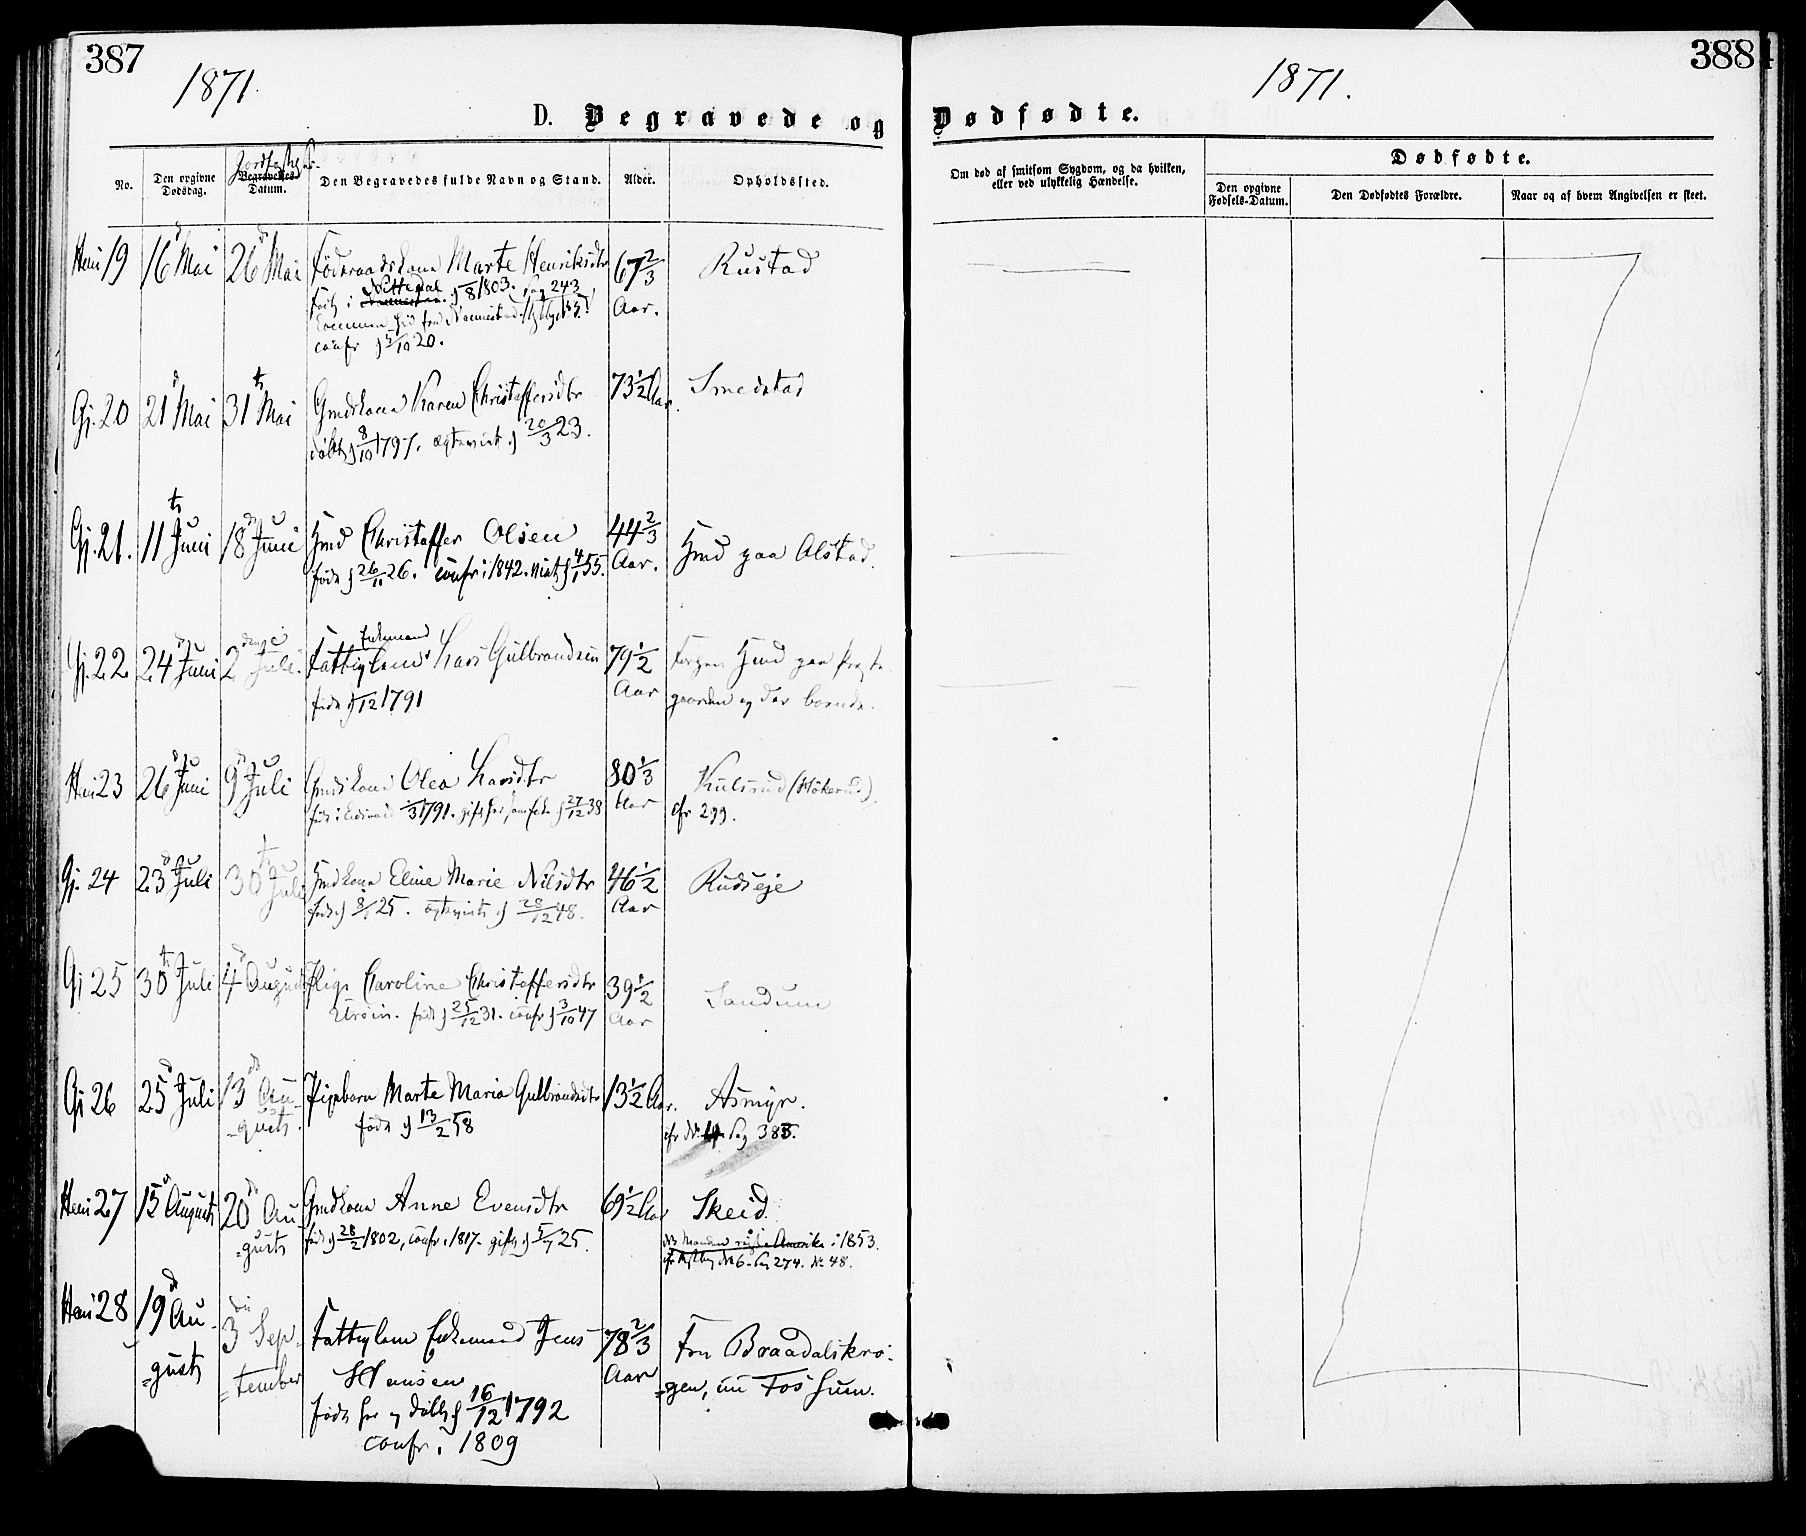 387
1871.
D. Begravede og
No.
Den opgivne Dødsdag.
Jordfæstelses-
Begravelses-Datum.
Den Begravedes fulde Navn og Stand.
Alder.
Opholdssted.
19 16 Mai 26 Mai Føderaadskone Marte Henriksdtr 67 2/3 Aar. Rustad
født i Nittedal 1803. Pag 243
confr 20.
Gj. 20 21 Mai 31 Mai Gmdskone Karen Christoffersdtr 73 1/2 Aar. Smedstad
døbt 8/10 1797. 20/3 23.
Gj. 21. 11 Juni 18 Juni Hmd Christoffer Olsen 44 2/3 Aar. Hmd paa Alstad.
født 26/11 26. confr: 1842. 4/1 55.
Gj. 22. 24 Juni 2 Juli. Enkemand
Fattiglem Lars Gulbrandsen 79 1/2 Aar Hmd paa Præste-
gaarden og der boende.
født 12 1791
23 26 Juni 9 Juli Gmdskone Olea Larsdtr 80 1/3 Aar Kulsrud (Høkerud).
født i Eidsvold 1791. 27/12 38
cfr 299.
Gj. 24 23 Juli 30 Juli Hmdkone Eline Marie Nilsdtr 46 1/2 Aar Rudseje
født 8/1 25. 28/12 48.
Gj 25 30 Juli 4 August Pige Caroline Christoffersdtr 39 1/2 Aar Sandum
født 25/12 31. confr 3/10 47
Gj 26 25 Juli 13 Au-
gust. Pigebarn Marte Maria Gulbrandsdtr 13 1/2 Aar. Asmyr.
født 13/2 58
cfr Pag 383.
27 15 August 20 Au-
gust Gmdkone Anne Evensdtr 69 1/2 Aar Skeid.
født 28/2 1802, confr. 1817. gift 5/7 25.
NB Manden Amerika i 1853.
6. Pag 274. No 48.
28 19 Au-
gust 3 Sep-
tember Fattiglem Enkemand Jens
Hansen 78 2/3 Aar Fra Braadalskro-
gen, nu Fossum.
født her og døbt 16/12 1792
confr. 1809
388
1871.
Dødfødte.
Om død af smitsom Sygdom, og da hvilken,
eller ved ulykkelig Hændelse.
Dødfødte.
Den opgivne Fødsels-Datum.
Den Dødfødtes Forældre.
Naar og af hvem Angivelsen er skeet.